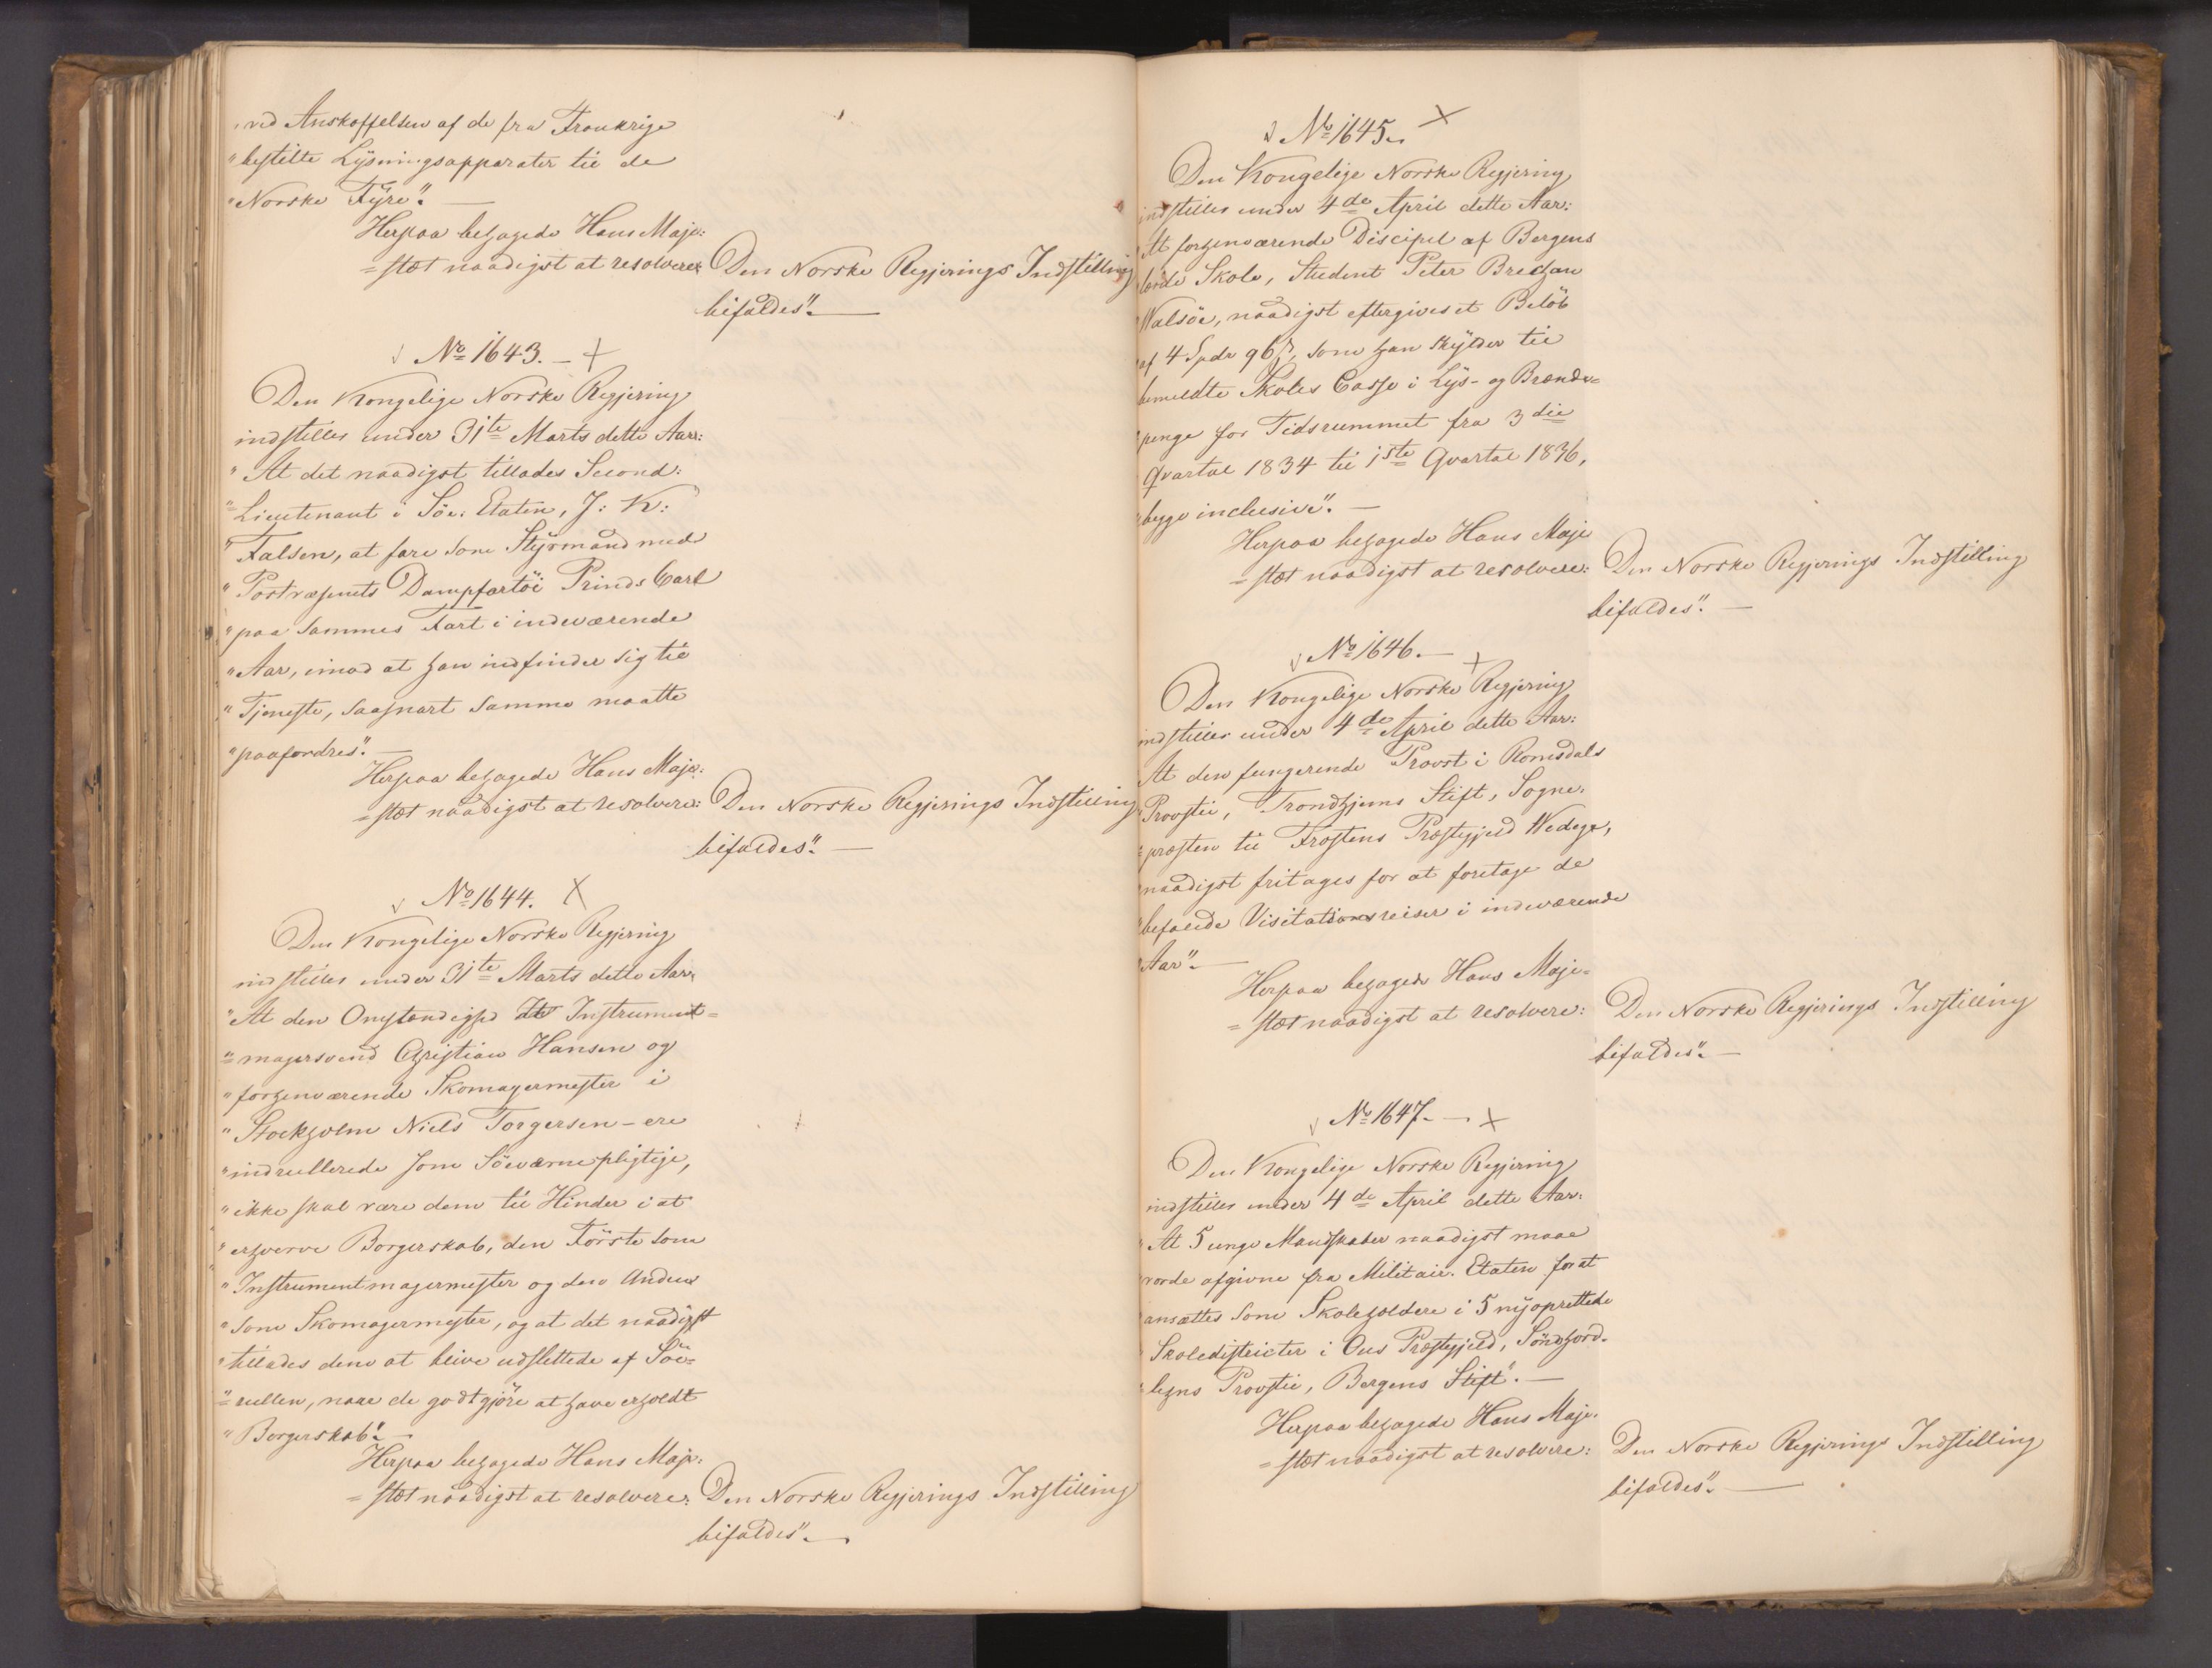 "ved Anskaffelsen af de fra Frankrige
"bestilte Lysningsapparater til de
"Norske Fyre".
Herpaa behagede Hans Maje:
=stæt naadigst at resolvere: Den Norske Regjerings Indstilling
bifaldes".
No 1643. +
Den Kongelige Norske Regjering
indstiller under 31te Marts dette Aar:
"At det naadigst tillades Second:
"Lieutenant i Söe: Etaten, J: K:
"Falsen, at fare som Styrmand med
"Postvæsenets Dampfartöi Prinds Carl
"paa sammes Fart i indeværende
"Aar, imod at han indfinder sig til
"Tjeneste, saasnart samme maatte
"paafordres".
Herpaa behagede Hans Maje:
=stæt naadigst at resolvere: Den Norske Regjerings Indstilling
bifaldes".
No 1644. X
Den Kongelige Norske Regjering
indstiller under 31te Marts dette Aar:
"At den Omstændighed at Instrument=
"=magersvend Christian Hansen og
"forhenværende Skomagermester i
"Stockholm Niels Torgersen - ere
"indrullerede som Söeværnepligtige,
"ikke skal være dem til Hinder i at
"erhverve Borgerskab, den Förste som
"Instrumentmagermester og den Anden
"som Skomagermester, og at det naadigst
"tillades dem at blive udslettede af Söe=
"=rullen, naar de godtgjöre at have erholdt
"Borgerskab".
Herpaa behagede Hans Maje:
=stæt naadigst at resolvere: Den Norske Regjerings Indstilling
bifaldes".
No 1645. X
Den Kongelige Norske Regjering
indstiller under 4de April dette Aar:
"At forhenværende Discipel af Bergens
"lærde Skole, Student Peter Bredhan
"Walsöe, naadigst eftergives et Belöb
"af 4 Spdr 96 ß, som han skylder til
"bemeldte Skoles Casse i Lys- og Brænde=
"penge for Tidsrummet fra 3die
"Qvartal 1834 til 1ste Qvartal 1836,
"begge inclusive".
Herpaa behagede Hans Maje
=stæt naadigst at resolvere: Den Norske Regjerings Indstilling
bifaldes".
No 1646. +
Den Kongelige Norske Regjering
indstiller under 4de April dette Aar:
"At den fungerende Provst i Romsdals
"Provstie, Trondhjems Stift, Sogne:
"=præsten til Frostens Præstegjeld Wedege,
"naadigst fritages for at foretage de
"befalede Visitationsreiser i indeværende
"Aar".
Herpaa behagede Hans Maje=
=stæt naadigst at resolvere: Den Norske Regjerings Indstilling
bifaldes".
No 1647. +
Den Kongelige Norske Regjering
indstiller under 4de April dette Aar:
"At 5 unge Mandskaber naadigst maae
"vorde afgivne fra Militair-Etaten for at
"ansættes som Skoleholdere i 5 nyoprettede
"Skoledistricter i Ous Præstegjeld, Söndhord-
"lehns Provstie, Bergens Stift".
Herpaa behagede Hans Maje:
=stæt naadigst at resolvere: Den Norske Regjerings Indstilling
bifaldes".